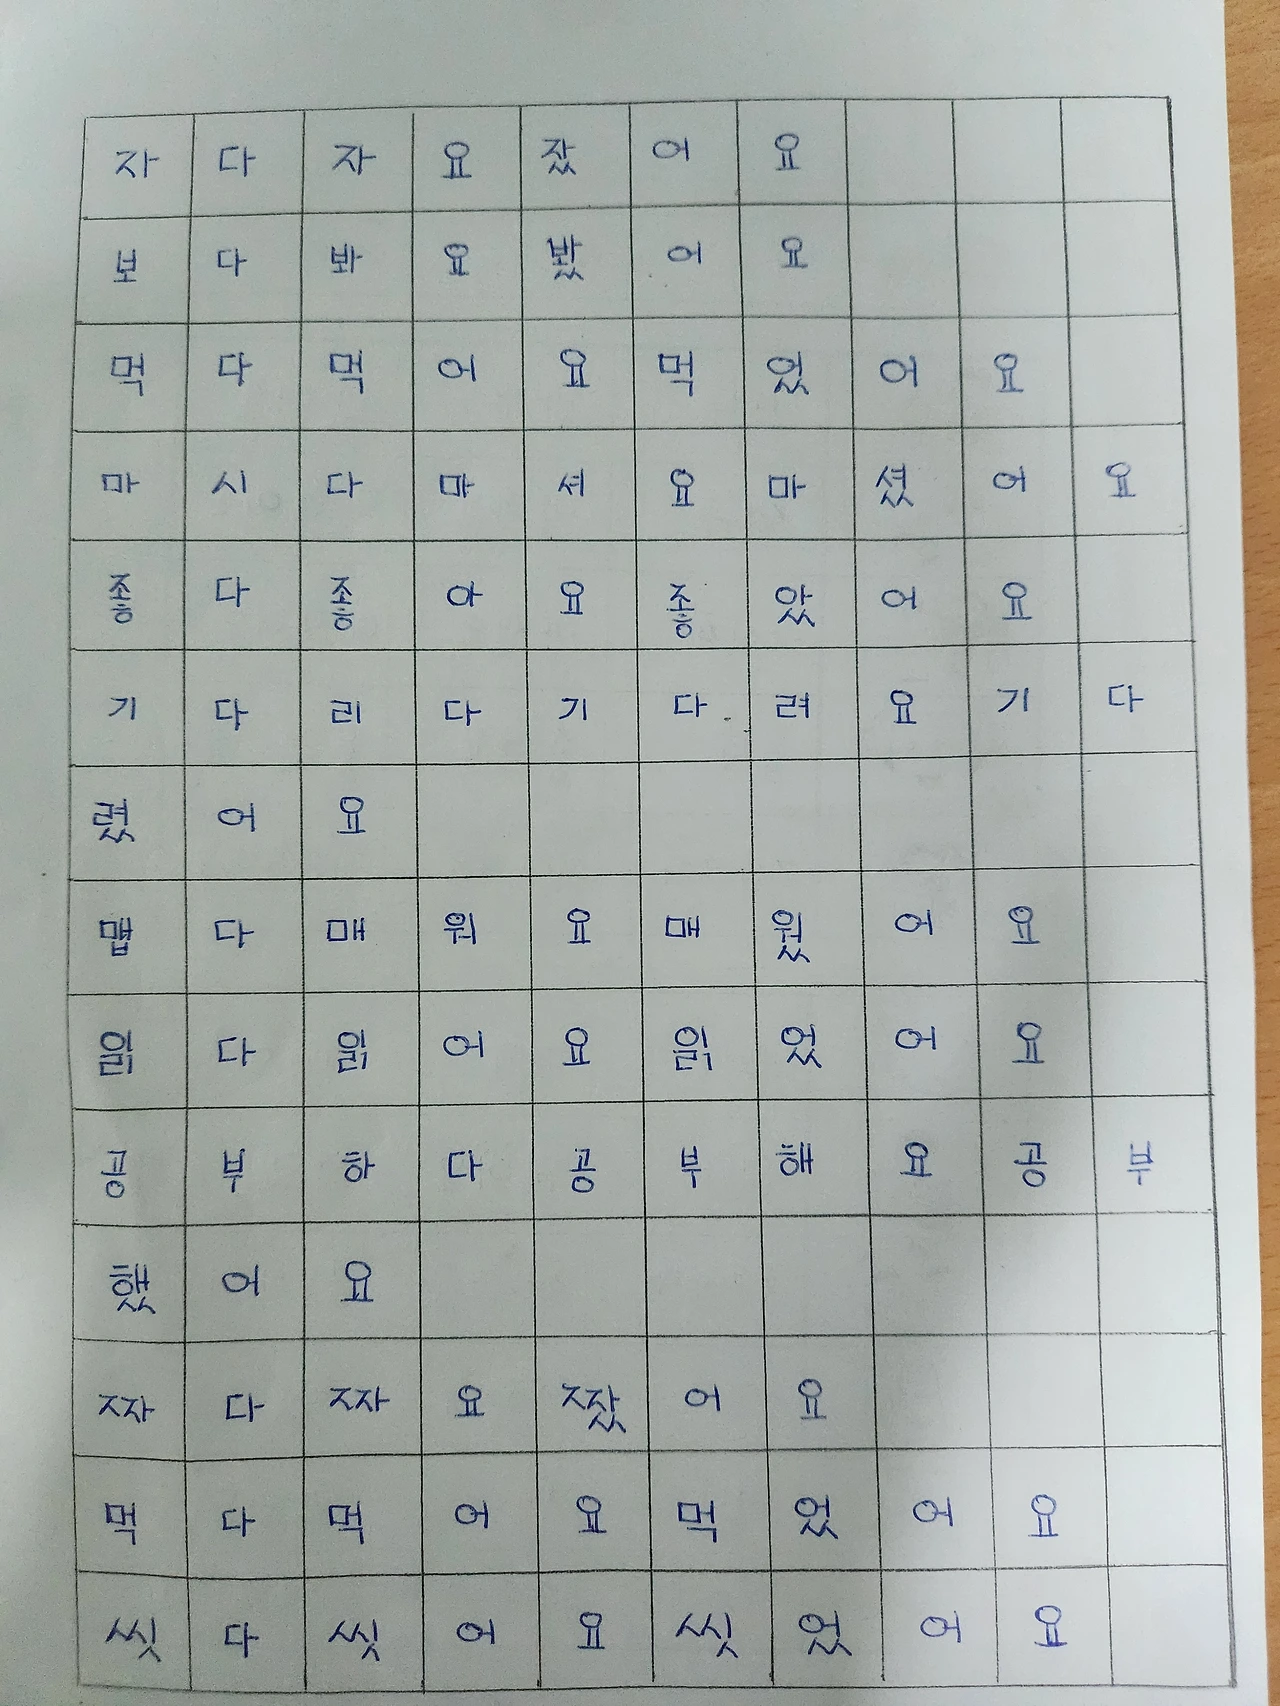 자다자요잤어요
보다봐요봤어요
먹다먹어요먹었어요
마시다마셔요마셨어요
좋다좋아요좋았어요
기다리다기다려요기다
렸어요
맵다매워요매웠어요
읽다읽어요읽었어요
공부하다공부해요공부
했어요
짜다짜요짰어요
먹다먹어요먹었어요
씻다씻어요씻었어요